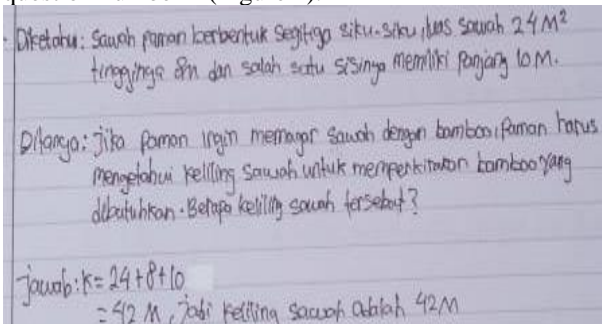 Diketahui: Sawah paman berbentuk segitiga siku-siku, luas sawah 24 M²
tingginya 8m dan salah satu sisinya memiliki panjang 10 M.
Ditanya: Jika Paman ingin memagar sawah dengan bamboo, Paman harus
mengetahui keliling sawah untuk memperkirakan bamboo yang
dibutuhkan. Berapa keliling sawah tersebut?
Jawab: K= 24+8+10
= 42 M, jadi keliling sawah adalah 42M